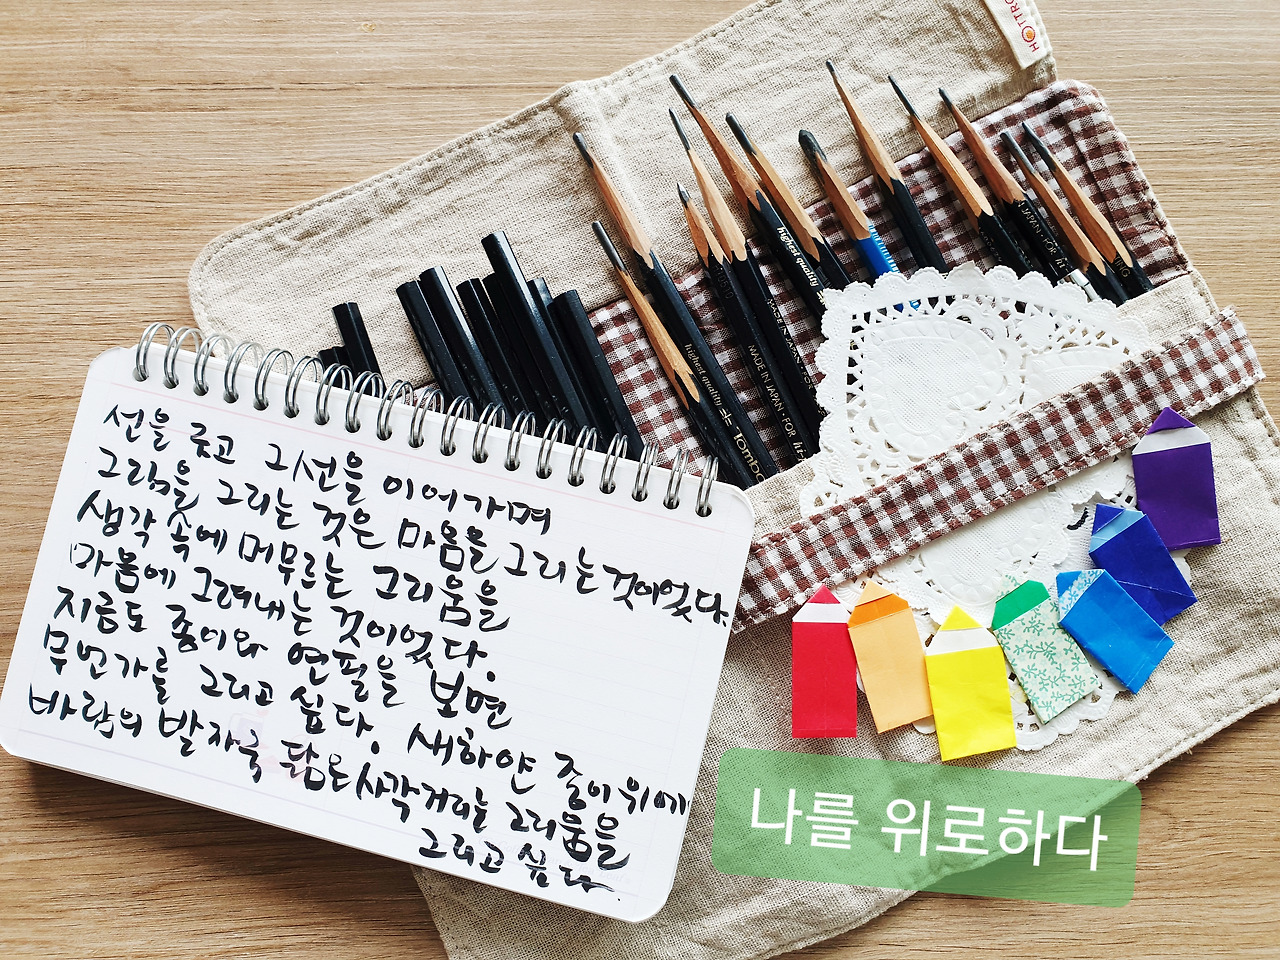 선을 긋고 그 선을 이어가며
그림을 그리는 것은 마음을 그리는 것이었다.
생각 속에 머무르는 그리움을
마음에 그려내는 것이었다.
지금도 종이와 연필을 보면
무언가를 그리고 싶다. 새하얀 종이 위에
바람의 발자국 닮은 사각거리는 그리움을
그리고 싶다.
나를 위로하다
highest quality
MADE IN JAPAN · FOR
highest quality
Tombo
MADE IN JAPAN · FOR hi-
JAPAN · FOR
HOTTRO